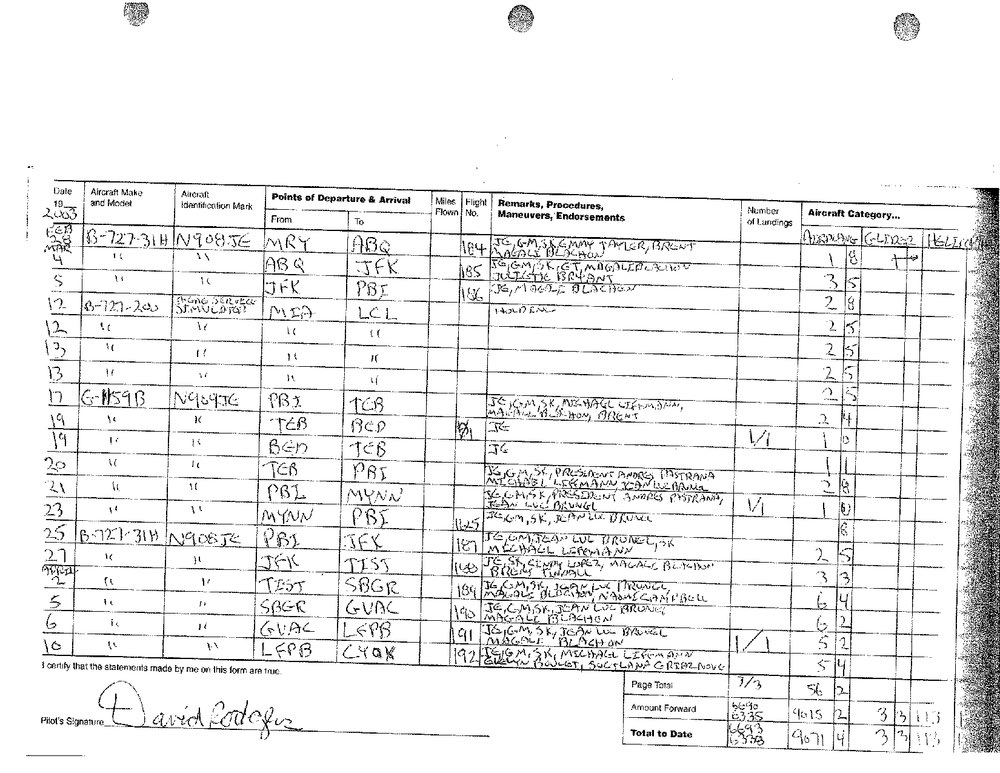 Date 19__ 2003 Aircraft Make and Model Aircraft Identification Mark Points of Departure & Arrival From To Miles Flown Flight No. Remarks, Procedures, Maneuvers, Endorsements Number of Landings Aircraft Category...
AIRPLANE GLIDER
FEB 28 B-727-31H N908JE MRY ABQ 184 JE, GM, SK, EMMY TAYLER, BRENT
MAGALE BLACHON 1 8
MAR 4 " " ABQ JFK 185 JE, GM, SK, ET, MAGALE BLACHON
BRYANT 3 5
5 " " JFK PBI 186 JE, MAGALE BLACHON 2 8
12 B-727-200 SIMULATOR MIA LCL HOLDING 2 5
12 " " " " 2 5
13 " " " " 2 5
13 " " " " 2 5
17 G-1159B N909JE PBI TEB JE, GM, SK, MICHAEL LIFFMANN,
MAGALE BLACHON, BRENT 2 4
19 " " TEB BED JE 1/1 1 0
19 " " BED TEB JE 1 1
20 " " TEB PBI JE, GM, SK, PRESIDENT ANDRES PASTRANA
MICHAEL LIFFMANN JEAN LUC BRUNEL 2 8
21 " " PBI MYNN JE, GM, SK, PRESIDENT ANDRES PASTRANA,
JEAN LUC BRUNEL 1/1 1 0
23 MYNN PBI JE, GM, SK, JEAN LUC BRUNEL 8
25 B-727-31H N908JE PBI JFK 187 JE, GM, JEAN LUC BRUNEL, SK
MICHAEL LIFFMANN 2 5
27 " " JFK TIST 188 JE, SK, CINDY LOPEZ, MAGALE BLACHON
BRENT TINDALL 3 3
APRIL 2 " " TIST SBGR 189 JE, GM, SK, JEAN LUC BRUNEL
MAGALE BLACHON, NAOMI CAMPBELL 6 4
5 " " SBGR GVAC 190 JE, GM, SK, JEAN LUC BRUNEL
MAGALE BLACHON 6 2
6 " " GVAC LFPB 191 JE, GM, SK, JEAN LUC BRUNEL
MAGALE BLACHON 1/1 5 2
10 " " LFPB CYQX 192 JE, GM, SK, MICHAEL LIFFMANN
5 4
I certify that the statements made by me on this form are true.
Page Total 3/3 56 2
Pilot's Signature David Rodgers
Amount Forward 6690 6335 9015 2 3 3 113
Total to Date 6693 6338 9071 4 3 3 113